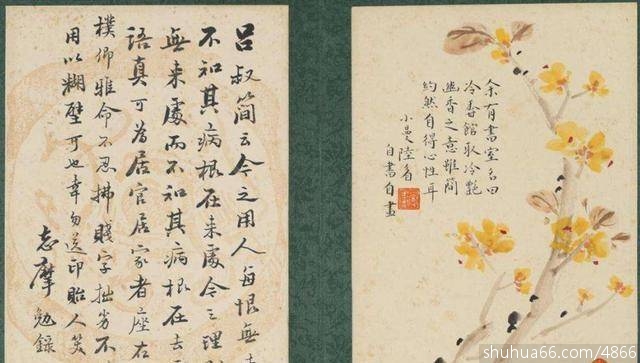 呂叔簡云今之用人每恨無
不知其病根在来處今之理
無来處而不知其病根在去
語真可為居官居家者座右
樸卿雅命不忍拂賤字拙劣不
用以糊壁可也幸勿送印貽人笑
志摩 勉錄
余有書室名曰
冷香館取冷艷
幽香之意雖簡
約然自得心性耳
小曼陸眉
自書自畫
shuhua66.com/4866